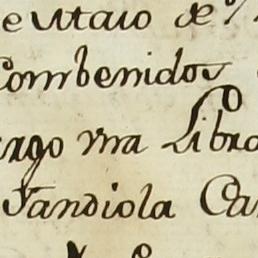 eutaio de
Combenidos
argo vna Libro
Fandiola Ca